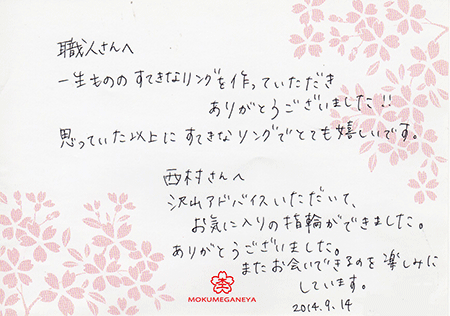 職人さんへ
一生もののすてきなリングを作っていただき
ありがとうございました!!
思っていた以上にすてきなリングでとても嬉しいです。
西村さんへ
沢山アドバイスいただいて、
お気に入りの指輪ができました。
ありがとうございました。
またお会いできるのを楽しみに
しています。
2014.9.14
MOKUMEGANEYA